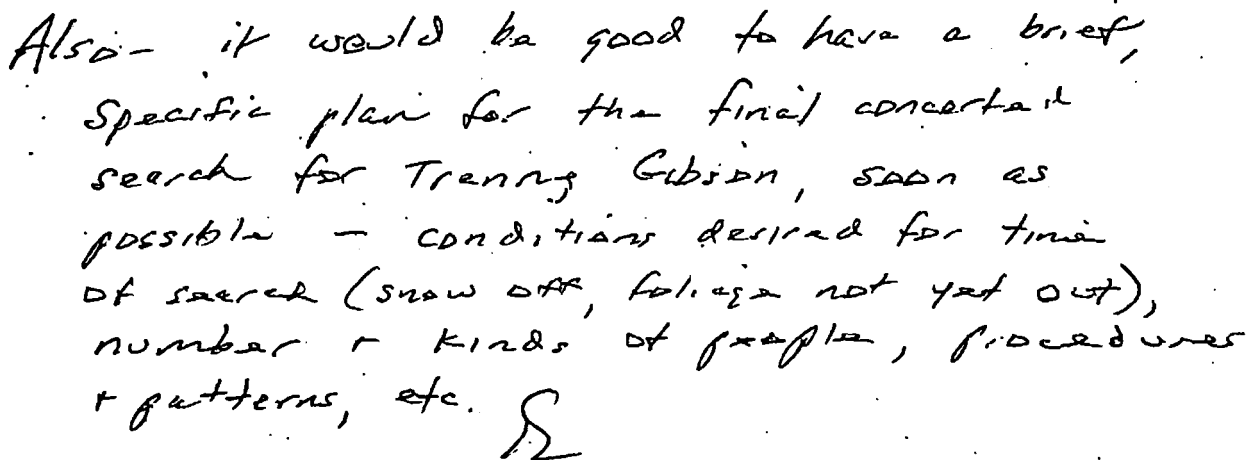 Also - it would be good to have a brief,
specific plan for the final concerted
search for Trenny Gibson, soon as
possible - conditions desired for time
of search (snow off, foliage not yet out),
number + kinds of people, procedures
+ patterns, etc.